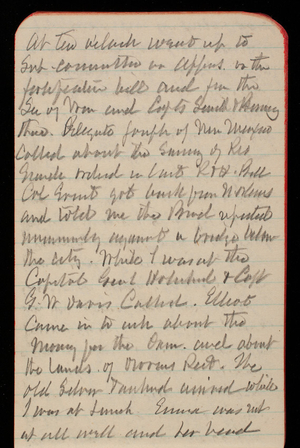 At ten o'clock went up to
Sub-committee on Appns. on the
fortification bill and for the
Sec of War and Capts Sewell &
there. Delegate Joseph of New Mexico
called about the survey of Rio
Grande ordered in last R & H. Bill
Col Ernst got back from N Orleans
and told me the Board reported
unanimously against a bridge below
the city. While I was at the
Capitol Genl Holabird & Capt
G. W Davis called. Elliot
came in to ask about the
money for the Dam. and about
the lands of Rest. The
old Silver Tankard arrived while
I was at lunch Emma was not
at all well and her head